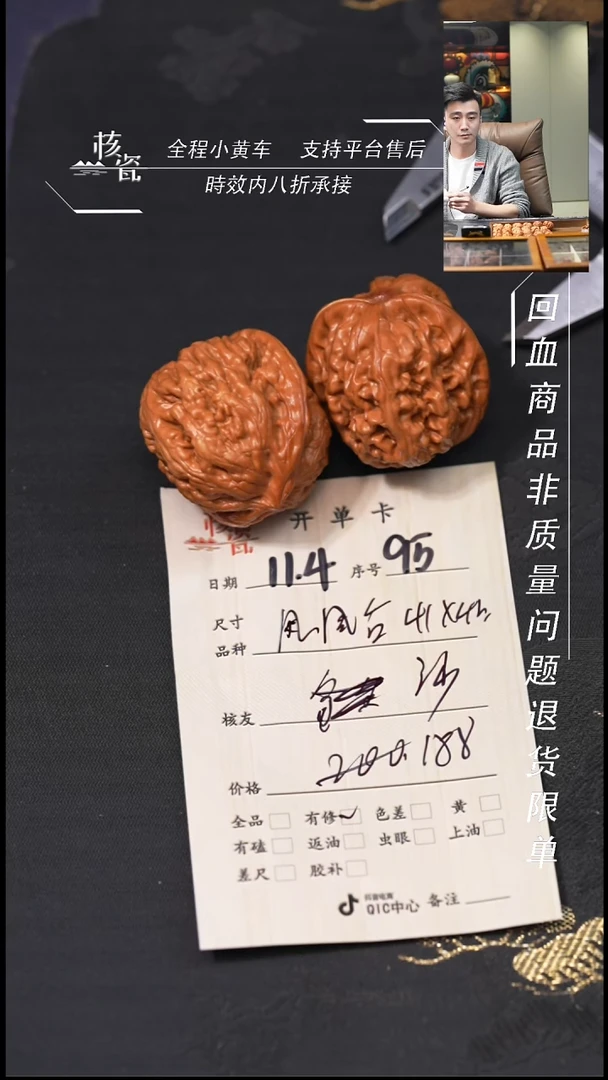 核瓷
全程小黄车 支持平台售后
時效内八折承接
回血商品非质量问题退货限单
核瓷
开单卡
日期 11.4 序号 95
尺寸
品种 凤凰台 41X4
核友
价格 200.188
全品 有修✓ 色差 黄
有磕 返油 虫眼 上油
差尺 胶补
抖音电商
QIC中心 备注